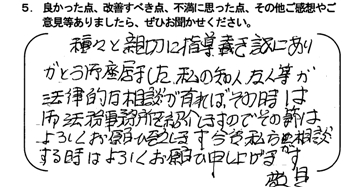 5. 良かった点、改善すべき点、不満に思った点、その他ご感想やご
意見等ありましたら、ぜひお聞かせください。
種々と親切に指導戴き誠にあり
がとう御座居ました 私の知人友人等が
法律的な相談が有れば、その時は
御法務事務所を紹介しますのでその節は
よろしくお願い致します 今後私方も相談
する時はよろしくお願い申し上げます
敬具